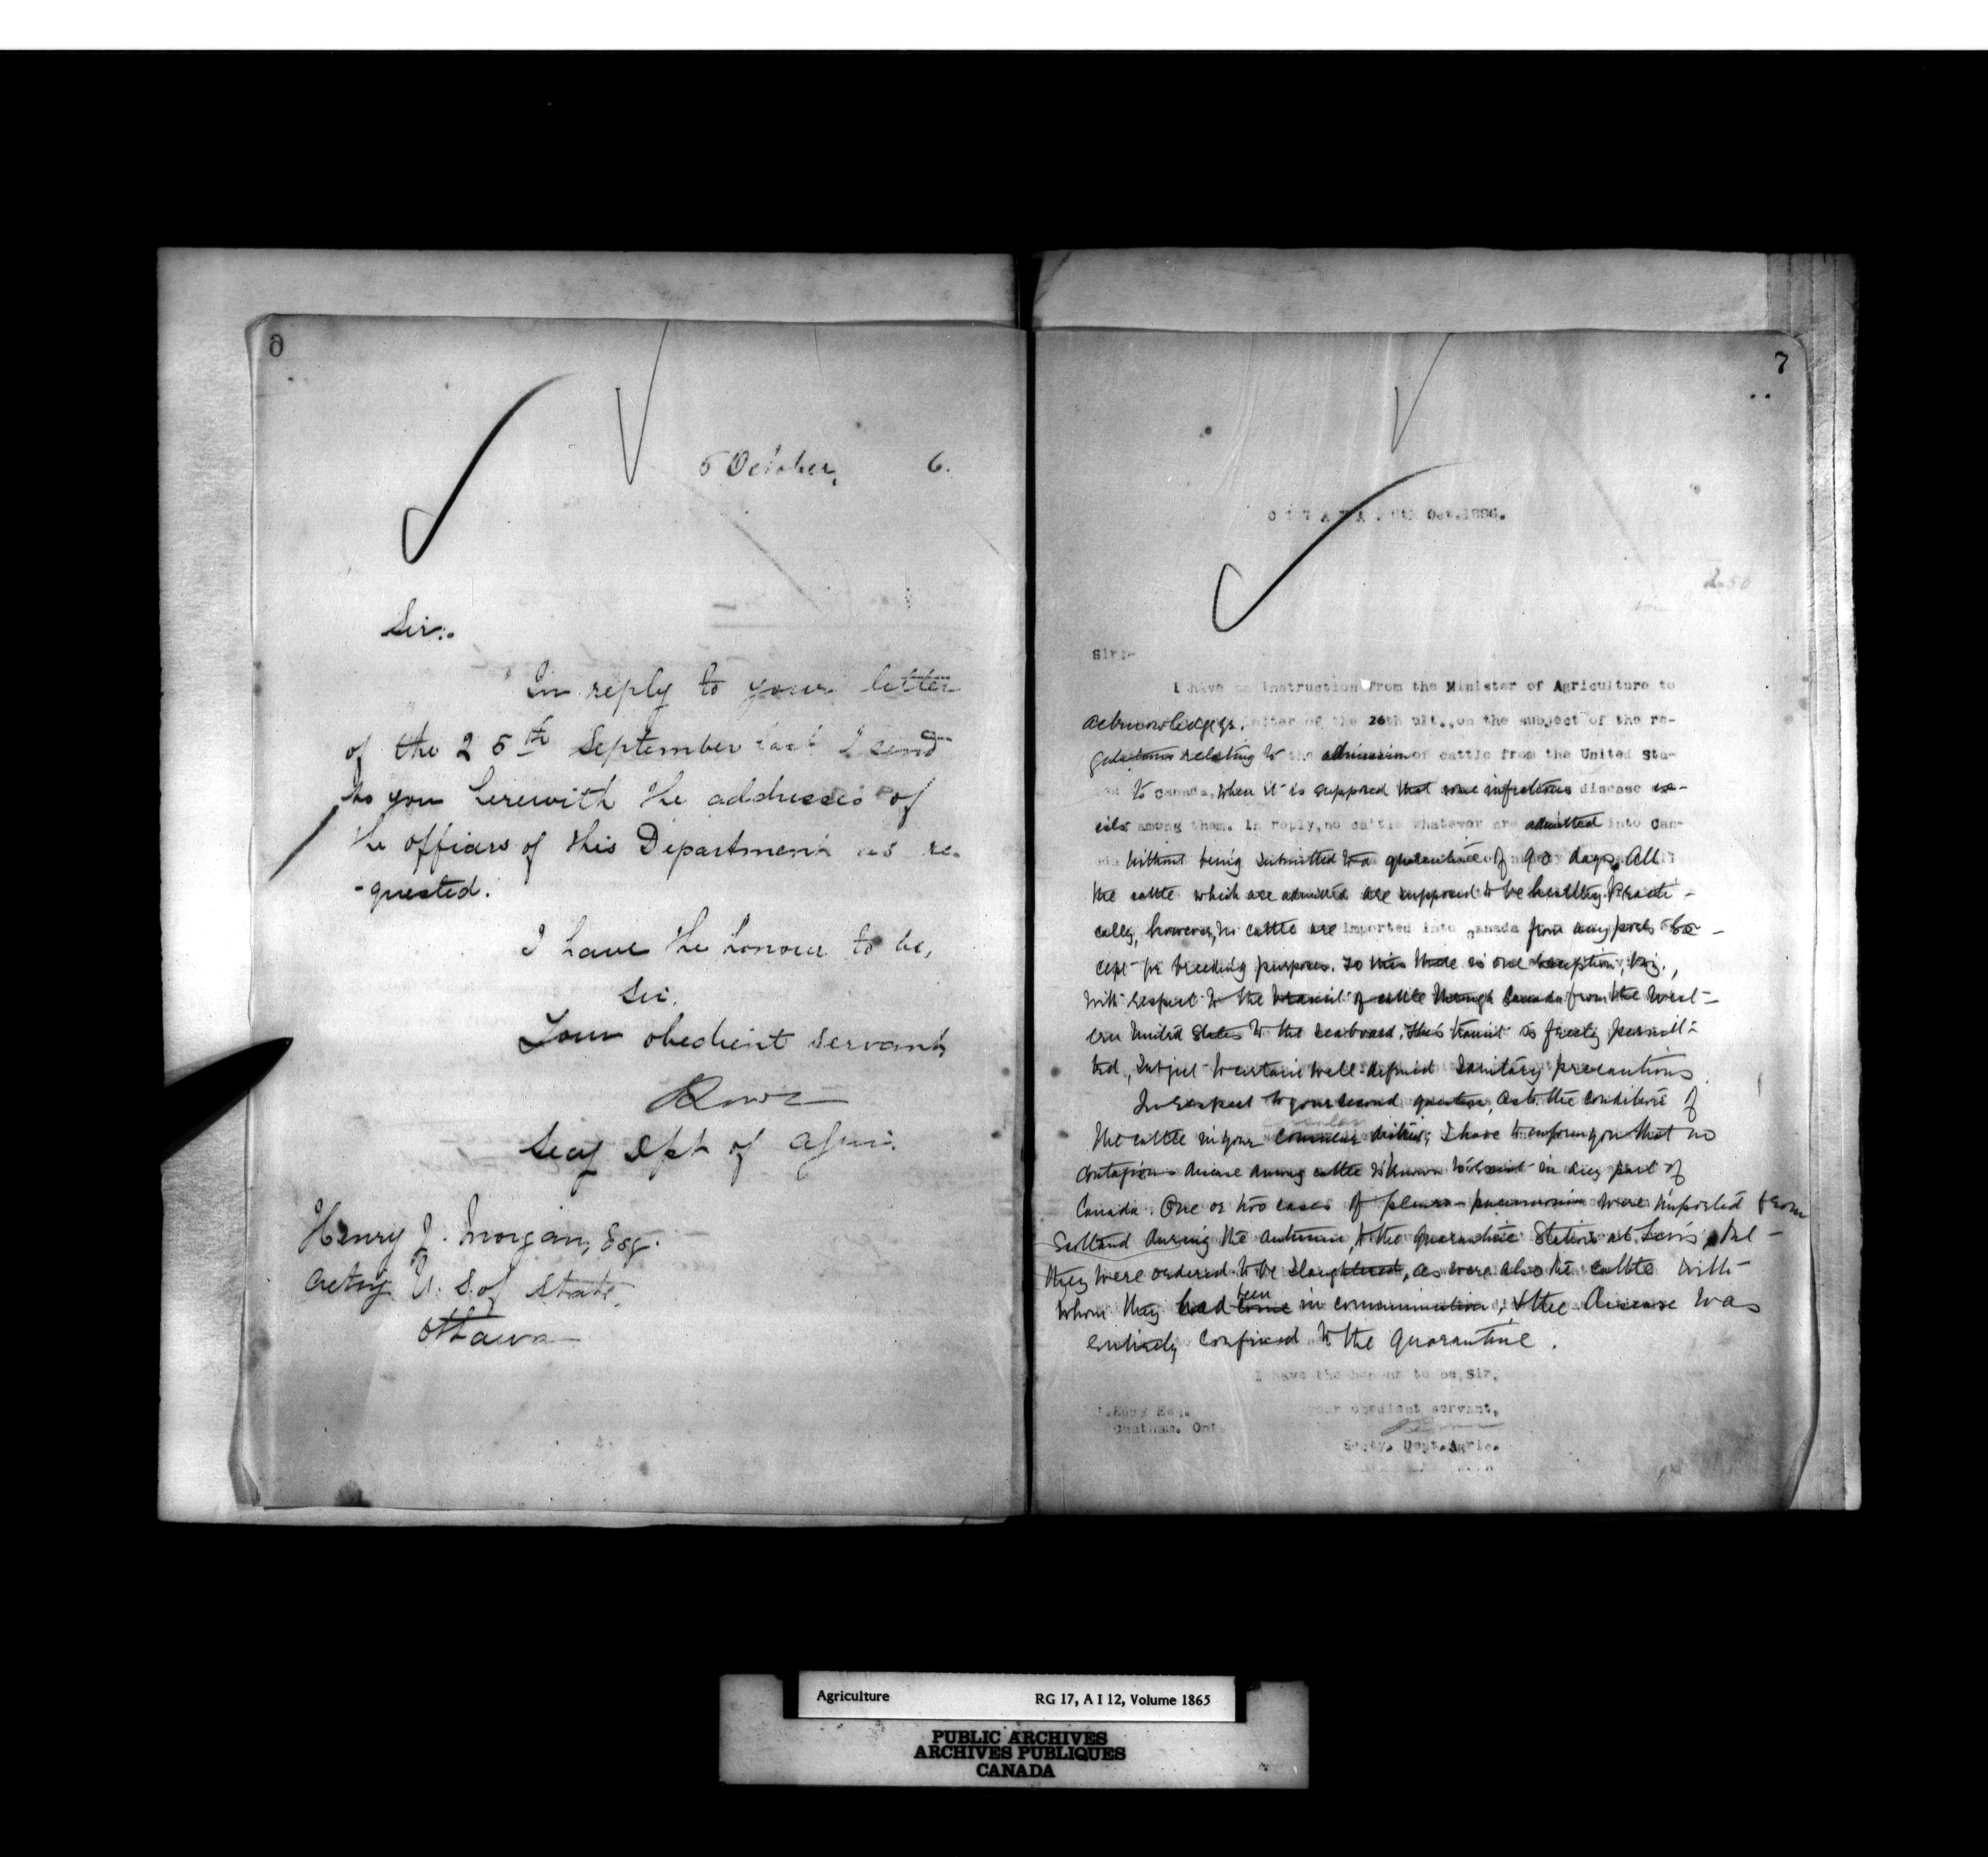 6
5 October, 6.
Sir:.
In reply to your letter
of the 25th September last I send
to you herewith the addresses of
the officers of this Department as re-
-quested.
I have the honour to be,
Sir,
Your obedient servant,
Secy Dpt of Agri.
Henry J. Morgan, Esq.
Acting U. S. of State,
Ottawa
7
OTTAWA. Oct. 1886.
2.50
Sir:-
I have instruction from the Minister of Agriculture to
acknowledge yr. letter of the 26th ult., on the subject of the re-
gulations relating to the admission of cattle from the United Sta-
to Canada, when it is supposed that some infectious disease ex-
ists among them. In reply, no cattle whatever are admitted into Can-
without being submitted to a quarantine of 90 days. All
the cattle which are admitted are supposed to be healthy. Practi-
cally, however, no cattle are imported into Canada from any ports ex-
cept for breeding purposes. To this there is one exception, viz.,
with respect to the transit of cattle through Canada from the West-
ern United States to the seaboard. This transit is freely permit-
ted, subject to certain well defined sanitary precautions.
In respect to your second question, as to the condition of
the cattle in your district, I have to inform you that no
contagious disease among cattle is known to exist in any part of
Canada. One or two cases of pleuro-pneumonia were imported from
Scotland during the autumn, to the Quarantine Station at Levis, but
they were ordered to be slaughtered, as were also the cattle with
whom they had been come in communication, & the disease was
entirely confined to the quarantine.
I have the honour to be, Sir,
your obedient servant,
Esq.
Chatham. Ont.
Secty. Dept. Agric.
Agriculture RG 17, A I 12, Volume 1865
PUBLIC ARCHIVES
ARCHIVES PUBLIQUES
CANADA